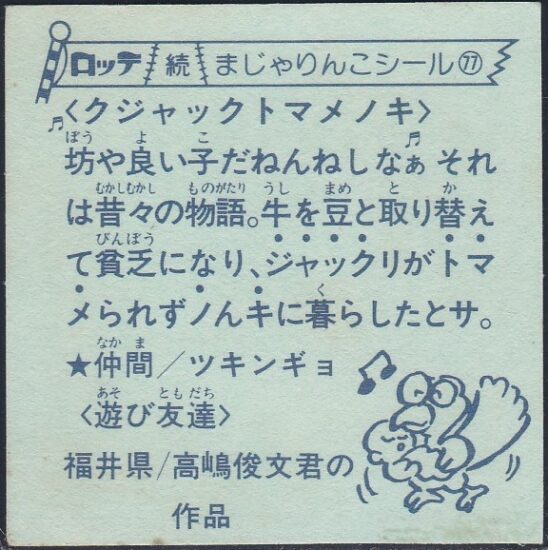 ロッテ 続 まじゃりんこシール77
〈クジャックトマメノキ〉
坊や良い子だねんねしなぁ それ
は昔々の物語。牛を豆と取り替え
て貧乏になり、ジャックリがトマ
メられずノんキに暮らしたとサ。
★仲間/ツキンギョ
〈遊び友達〉
福井県/高嶋俊文君の
作品